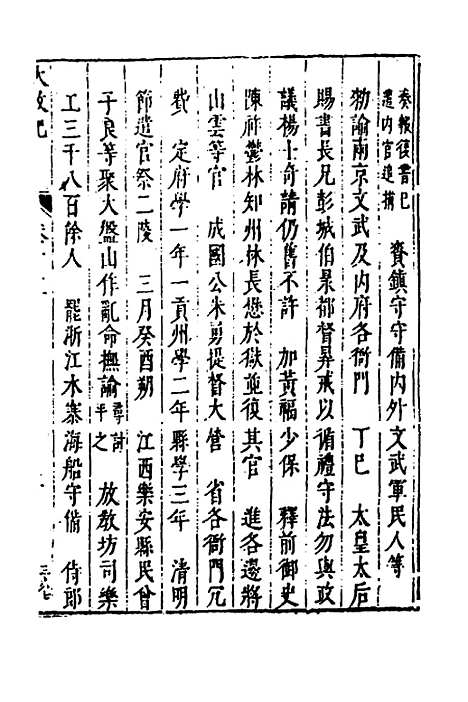 奏報復書已遣内官追補　賚鎮守守備内外文武軍民人等
勑諭南京文武及内府各衙門　丁巳　太皇太后
賜書長兄彭城伯㫤都督昇戒以循禮守法勿與政
議楊士奇請仍舊不許　加黄福少保　釋前御史
陳祚鬱林知州林長懋於獄並復其官　進各邊將
山雲等官　成國公朱勇提督大營　省各衙門冗
費　定府學一年一貢州學二年縣學三年　清明
節遣官祭二陵　三月癸酉朔　江西樂安縣民曾
子良等聚大盤山作亂命撫諭尋討平之　放教坊司樂
工三千八百餘人　罷浙江水寨海船守備　侍郎
大政記